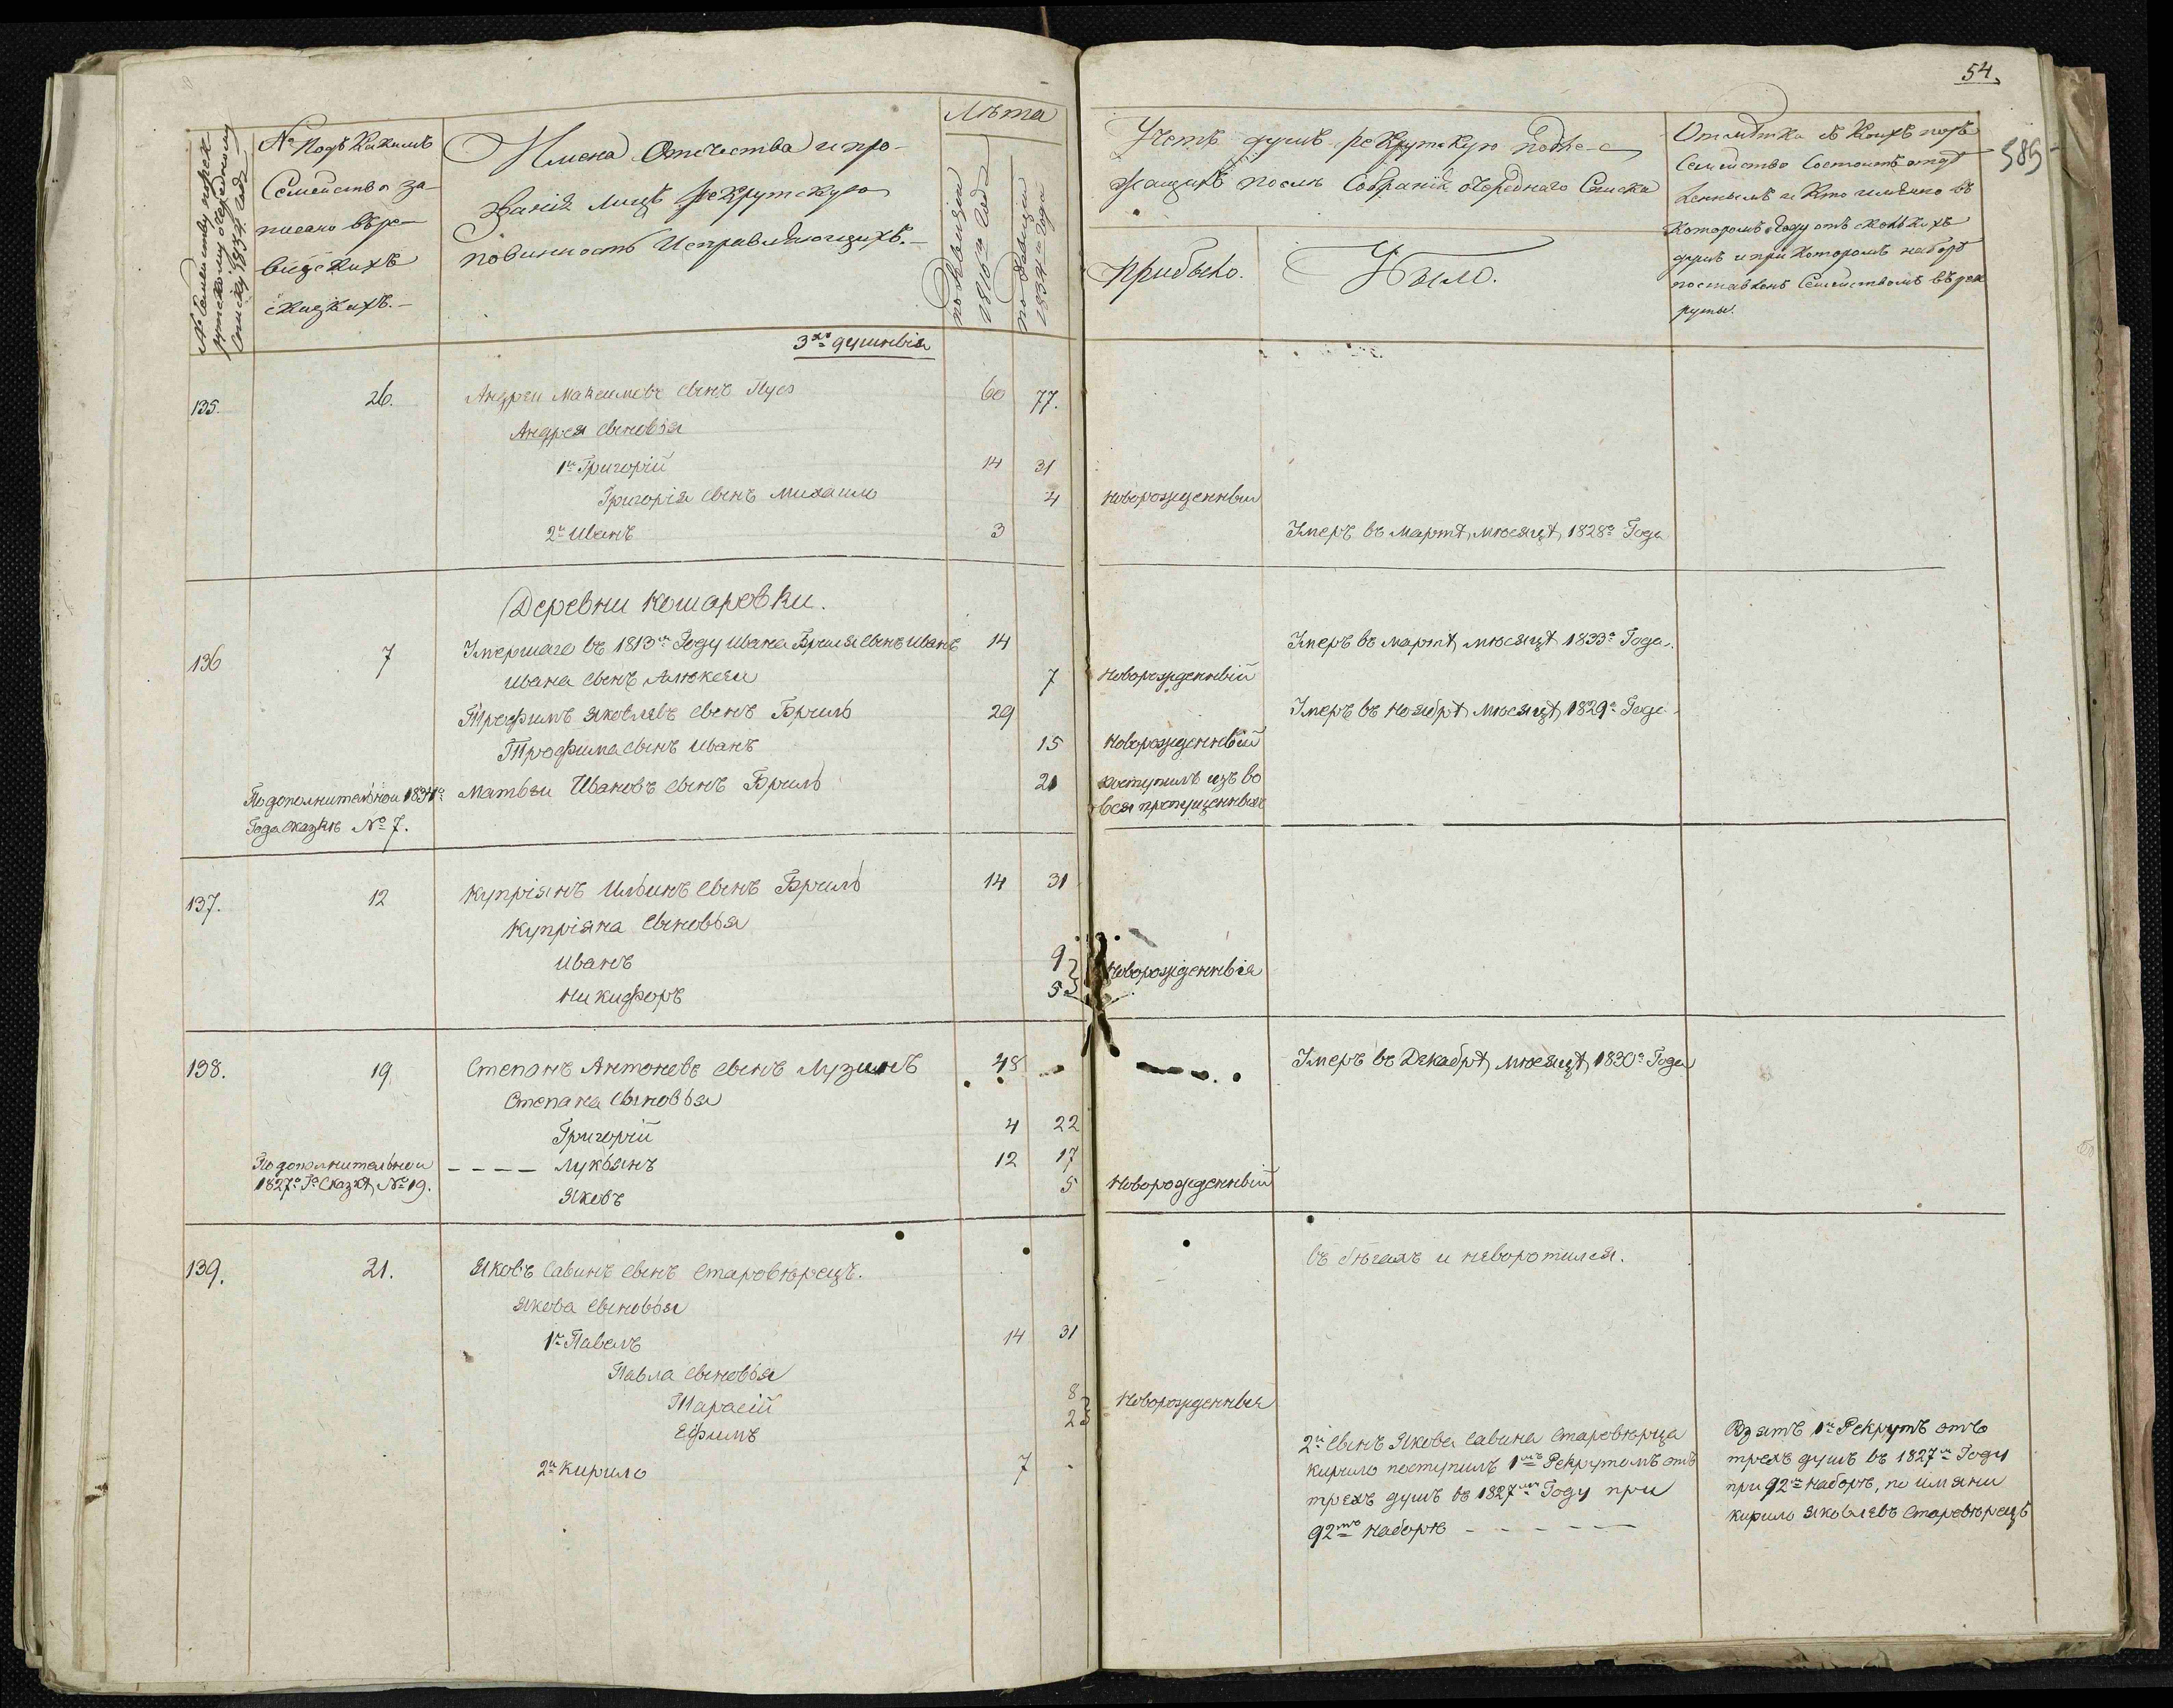 54.
585
№ Семейству по рек
рутскому очередному
списку 1834 года
№ Подъ Какимъ
Семейство за-
писано въ ре-
визскихъ
сказкахъ.-
Имена Отечества и про-
званія лицъ рекрутскую
повинность исправляющихъ.-
Лѣта
по Ревизіи
1816го Года
по Ревизіи
1834го года
Учетъ душъ рекрутскую подле-
жащихъ послѣ Собранія очереднаго Списка
Прибыло.
Убыло.
Отмѣтка съ Коихъ поръ
Семейство Состоитъ отдѣ
леннымъ и Кто именно въ
Которомъ Году отъ сколькихъ
душъ и при Которомъ наборѣ
поставленъ Семействомъ въ рек
руты.
3хъ душныя
135. 26. Андреи Максимовъ сынъ Пуся 60 77.
Андрея сыновья
1й Григорій 14 31
Григорія сынъ Михаило 4 Новорожденныи
2й Иванъ 3 Умеръ въ мартѣ мѣсяцѣ 1828го Года
Деревни Кошаровки.
136 7 Умершаго въ 1813м Году Ивана Бриля сынъ Иванъ 14 Умеръ въ мартѣ мѣсяцѣ 1833го Года.
Ивана сынъ Алексеи 7 Новорожденный
Трофимъ Яковлевъ сынъ Бриль 29 Умеръ въ Ноябрѣ мѣсяцѣ 1829го Года
Трофима сынъ Иванъ 15 Новорожденный
По дополнительной 1834го
Года сказкѣ № 7.
Матвѣи Ивановъ сынъ Бриль 21 поступилъ изъ во
вся пропущенныхъ
137. 12 Купріянъ Ильинъ сынъ Бриль 14 31
Купріяна сыновья
Иванъ 9
Новорожденныя
Никифоръ 5
138. 19 Степанъ Антоновъ сынъ Лузинъ 48 Умеръ въ Декабрѣ мѣсяцѣ 1830го Года
Степана сыновья
Григорій 4 22
По дополнительной
1827го Го Сказкѣ № 19.
---- Лукьянъ 12 17
Яковъ 5 Новорожденный
139. 21. Яковъ Савинъ сынъ Старовѣрецъ. въ бѣгахъ и неворотился.
Якова сыновья
1й Павелъ 14 31
Павла сыновья
Тарасій 8
Новорожденныя
Ефимъ 2
2й Кирило 7 -
2й сынъ Якова Савина Старовѣрца
Кирило поступилъ 1мъ Рекрутомъ отъ
трехъ душъ въ 1827мъ Году при
92мъ Наборѣ -----
Взятъ 1й Рекрутъ отъ
трехъ душъ въ 1827м Году
при 92м Наборѣ, по имяни
Кирило Яковлевъ Старовѣрецъ